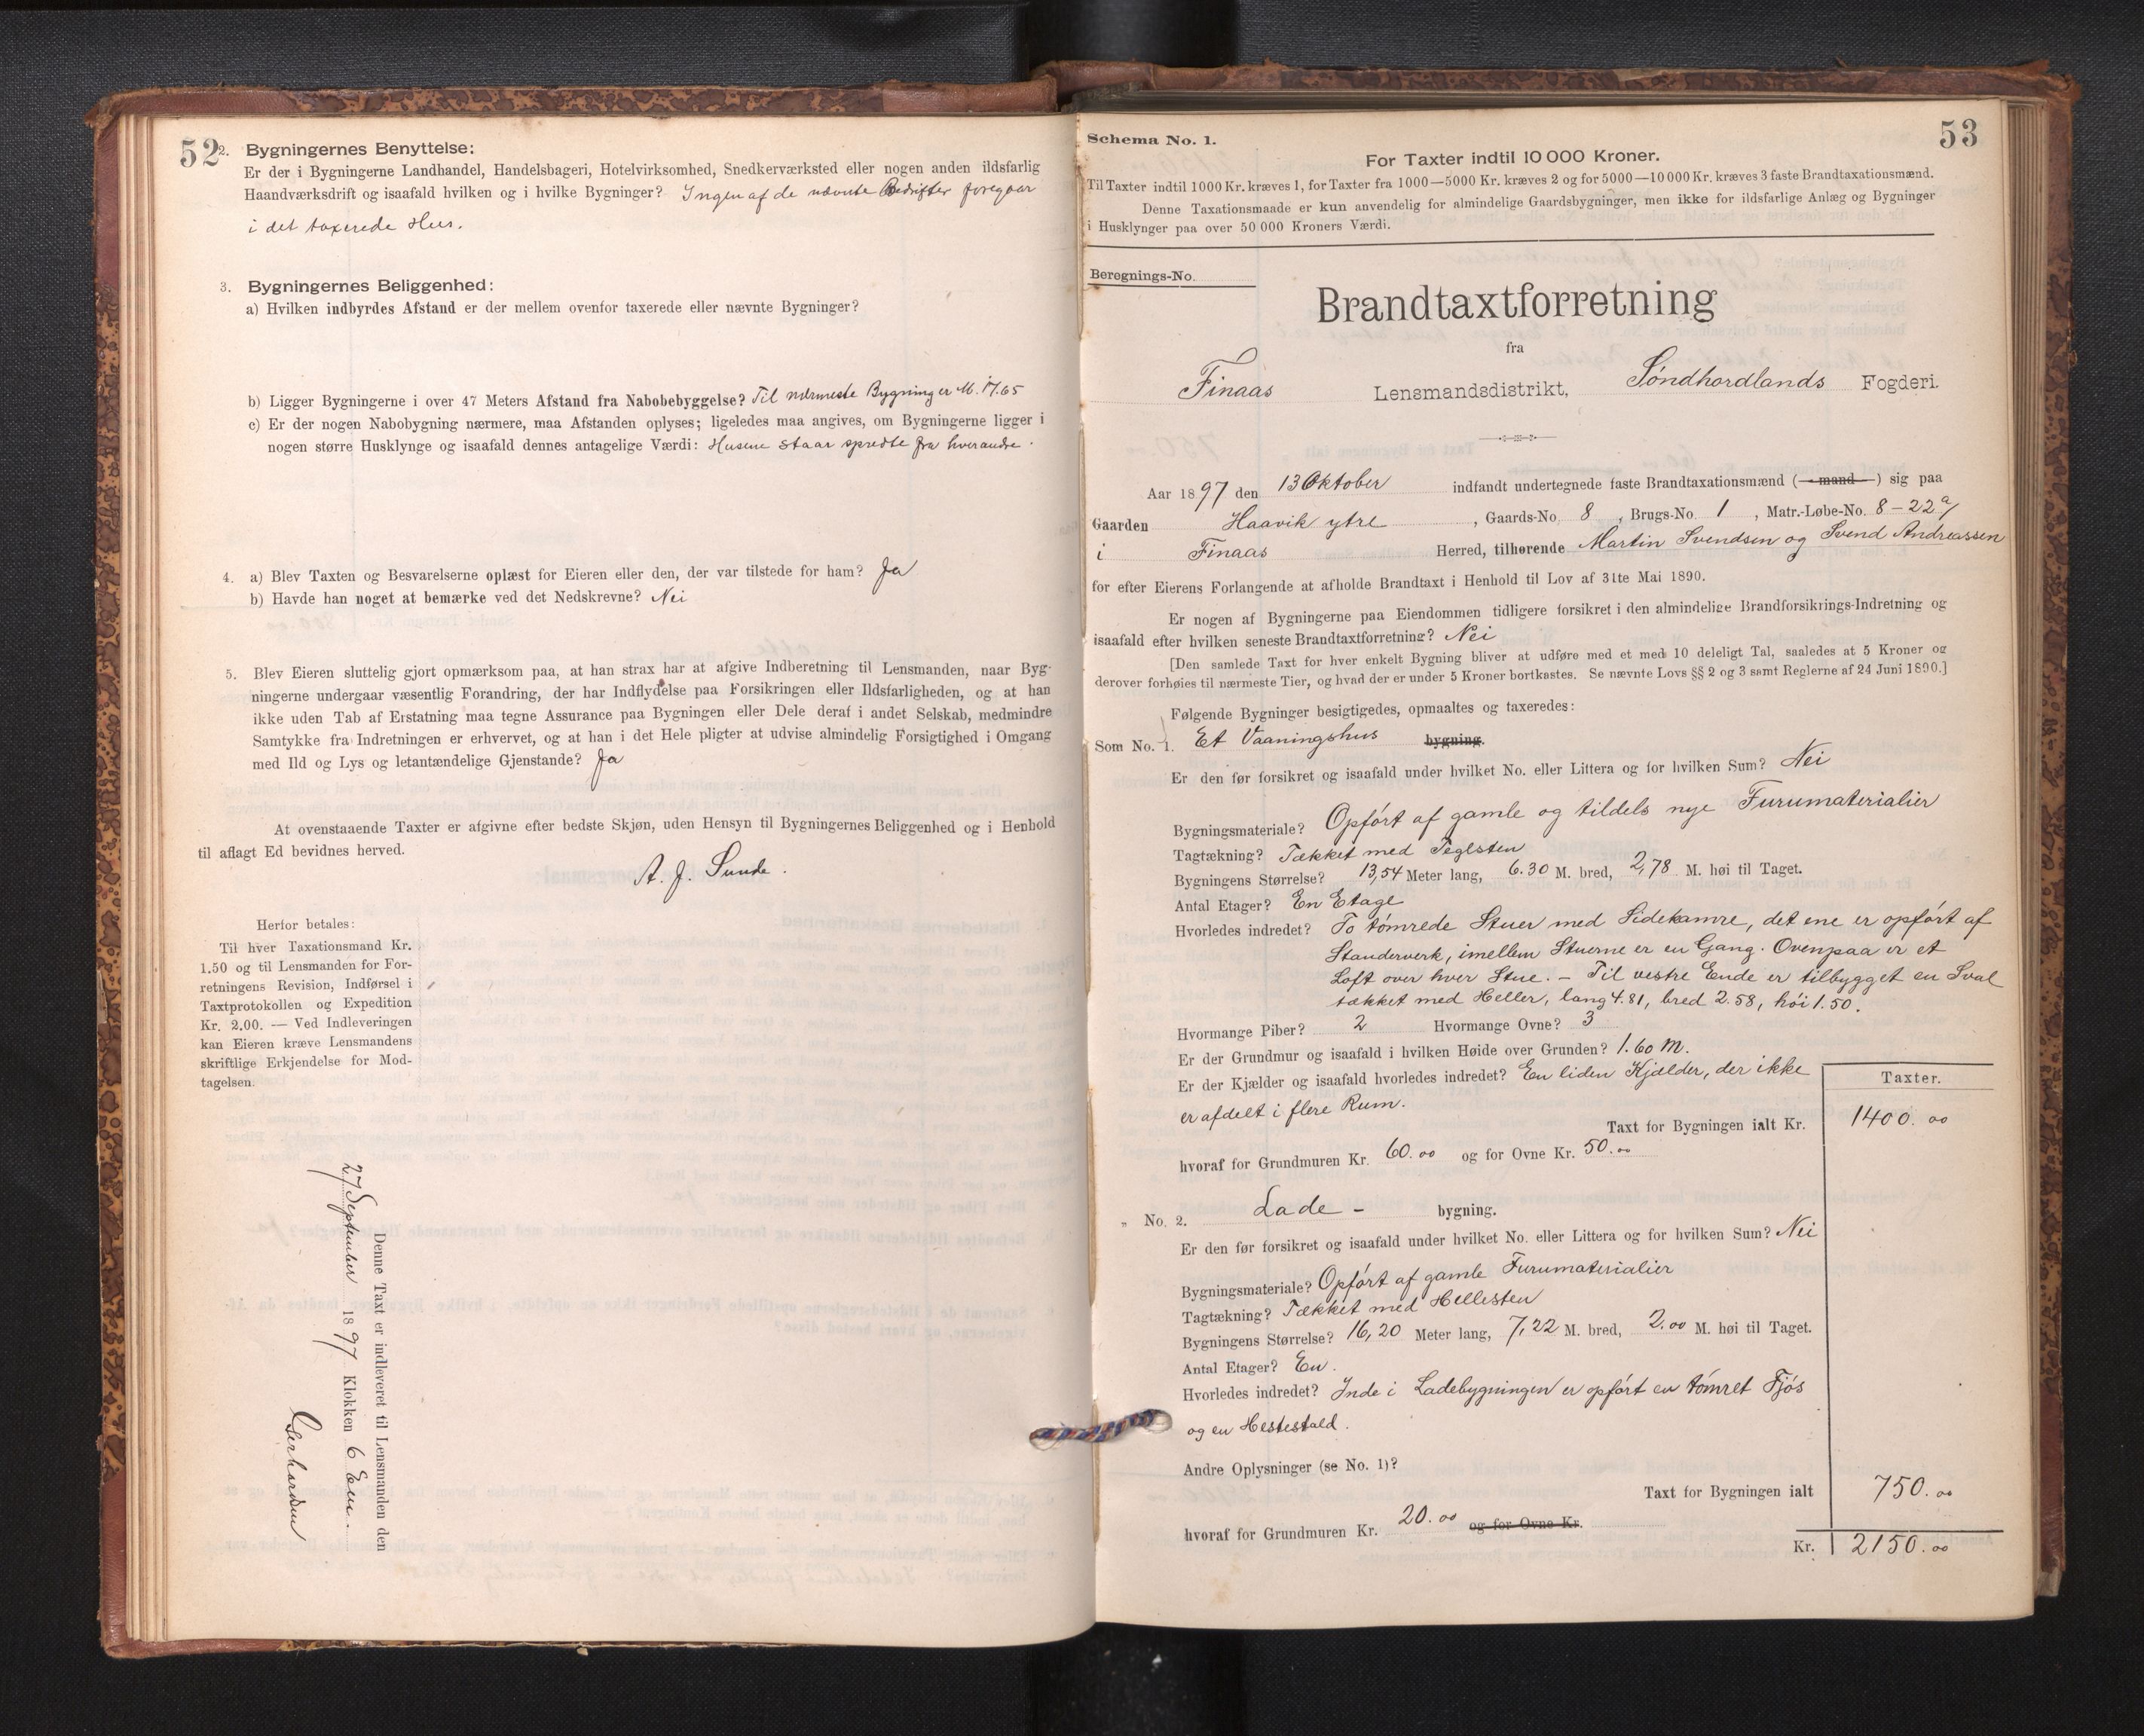 52
2. Bygningernes Benyttelse:
Er der i Bygningerne Landhandel, Handelsbageri, Hotelvirksomhed, Snedkerværksted eller nogen anden ildsfarlig
Haandværksdrift og isaafald hvilken og i hvilke Bygninger? Ingen af de nævnte Bedrifter foregaar
i det taxerede Hus.
3. Bygningernes Beliggenhed:
a) Hvilken indbyrdes Afstand er der mellem ovenfor taxerede eller nævnte Bygninger?
b) Ligger Bygningerne i over 47 Meters Afstand fra Nabobebyggelse? Til nærmeste Bygning er M. 17.65
c) Er der nogen Nabobygning nærmere, maa Afstanden oplyses; ligeledes maa angives, om Bygningerne ligger i
nogen større Husklynge og isaafald dennes antagelige Værdi: Husene staar spredte fra hverandre.
4. a) Blev Taxten og Besvarelserne oplæst for Eieren eller den, der var tilstede for ham? Ja
b) Havde han noget at bemærke ved det Nedskrevne? Nei
5. Blev Eieren sluttelig gjort opmærksom paa, at han strax har at afgive Indberetning til Lensmanden, naar Byg-
ningerne undergaar væsentlig Forandring, der har Indflydelse paa Forsikringen eller Ildsfarligheden, og at han
ikke uden Tab af Erstatning maa tegne Assurance paa Bygningen eller Dele deraf i andet Selskab, medmindre
Samtykke fra Indretningen er erhvervet, og at han i det Hele pligter at udvise almindelig Forsigtighed i Omgang
med Ild og Lys og letantændelige Gjenstande? Ja
At ovenstaaende Taxter er afgivne efter bedste Skjøn, uden Hensyn til Bygningernes Beliggenhed og i Henhold
til aflagt Ed bevidnes herved.
A. J. Sunde.
Herfor betales:
Til hver Taxationsmand Kr.
1.50 og til Lensmanden for For-
retningens Revision, Indførsel i
Taxtprotokollen og Expedition
Kr. 2.00. — Ved Indleveringen
kan Eieren kræve Lensmandens
skriftlige Erkjendelse for Mod-
tagelsen.
Denne Taxt er indleveret til Lensmanden den
27 September 1897 Klokken 6 Em.
Gerhardsen
53
Schema No. 1.
For Taxter indtil 10 000 Kroner.
Til Taxter indtil 1000 Kr. kræves 1, for Taxter fra 1000—5000 Kr. kræves 2 og for 5000—10 000 Kr. kræves 3 faste Brandtaxationsmænd.
Denne Taxationsmaade er kun anvendelig for almindelige Gaardsbygninger, men ikke for ildsfarlige Anlæg og Bygninger
i Husklynger paa over 50 000 Kroners Værdi.
Beregnings-No.
Brandtaxtforretning
fra
Finaas Lensmandsdistrikt, Söndhordlands Fogderi.
Aar 1897 den 13 Oktober indfandt undertegnede faste Brandtaxationsmænd (mand) sig paa
Gaarden Haavik ytre, Gaards-No. 8, Brugs-No. 1, Matr.-Løbe-No. 8 - 22a/
i Finaas Herred, tilhørende Martin Svendsen og Svend Andreassen
for efter Eierens Forlangende at afholde Brandtaxt i Henhold til Lov af 31te Mai 1890.
Er nogen af Bygningerne paa Eiendommen tidligere forsikret i den almindelige Brandforsikrings-Indretning og
isaafald efter hvilken seneste Brandtaxtforretning? Nei
[Den samlede Taxt for hver enkelt Bygning bliver at udføre med et med 10 deleligt Tal, saaledes at 5 Kroner og
derover forhøies til nærmeste Tier, og hvad der er under 5 Kroner bortkastes. Se nævnte Lovs §§ 2 og 3 samt Reglerne af 24 Juni 1890.]
Følgende Bygninger besigtigedes, opmaaltes og taxeredes:
Som No. 1. Et Vaaningshus bygning.
Er den før forsikret og isaafald under hvilket No. eller Littera og for hvilken Sum? Nei
Bygningsmateriale? Opfört af gamle og tildels nye Furumaterialier
Tagtækning? Tækket med Teglsten
Bygningens Størrelse? 13,54 Meter lang, 6.30 M. bred, 2,78 M. høi til Taget.
Antal Etager? En Etage
Hvorledes indredet? To tömrede Stuer med Sidekamre, det ene er opfört af
Standerverk, imellem Stuerne er en Gang. Ovenpaa er et
Loft over hver Stue. - Til vestre Ende er tilbygget en Sval
tækket med Heller, lang 4.81, bred 2.58, höi 1.50.
Hvormange Piber? 2 Hvormange Ovne? 3
Er der Grundmur og isaafald i hvilken Høide over Grunden? 1.60 M.
Er der Kjælder og isaafald hvorledes indredet? En liden Kjælder, der ikke
er afdelt i flere Rum.
Taxter.
Taxt for Bygningen ialt Kr. 1400.00
hvoraf for Grundmuren Kr. 60.00 og for Ovne Kr. 50.00
„ No. 2. Lade - bygning.
Er den før forsikret og isaafald under hvilket No. eller Littera og for hvilken Sum? Nei
Bygningsmateriale? Opfört af gamle Furumaterialier
Tagtækning? Tækket med Hellesten
Bygningens Størrelse? 16,20 Meter lang, 7,22 M. bred, 2.00 M. høi til Taget.
Antal Etager? En.
Hvorledes indredet? Inde i Ladebygningen er opfört en tömret Fjös
og en Hestestald.
Andre Oplysninger (se No. 1)?
Taxt for Bygningen ialt 750.00
hvoraf for Grundmuren Kr. 20.00 og for Ovne Kr.
Kr. 2150.00